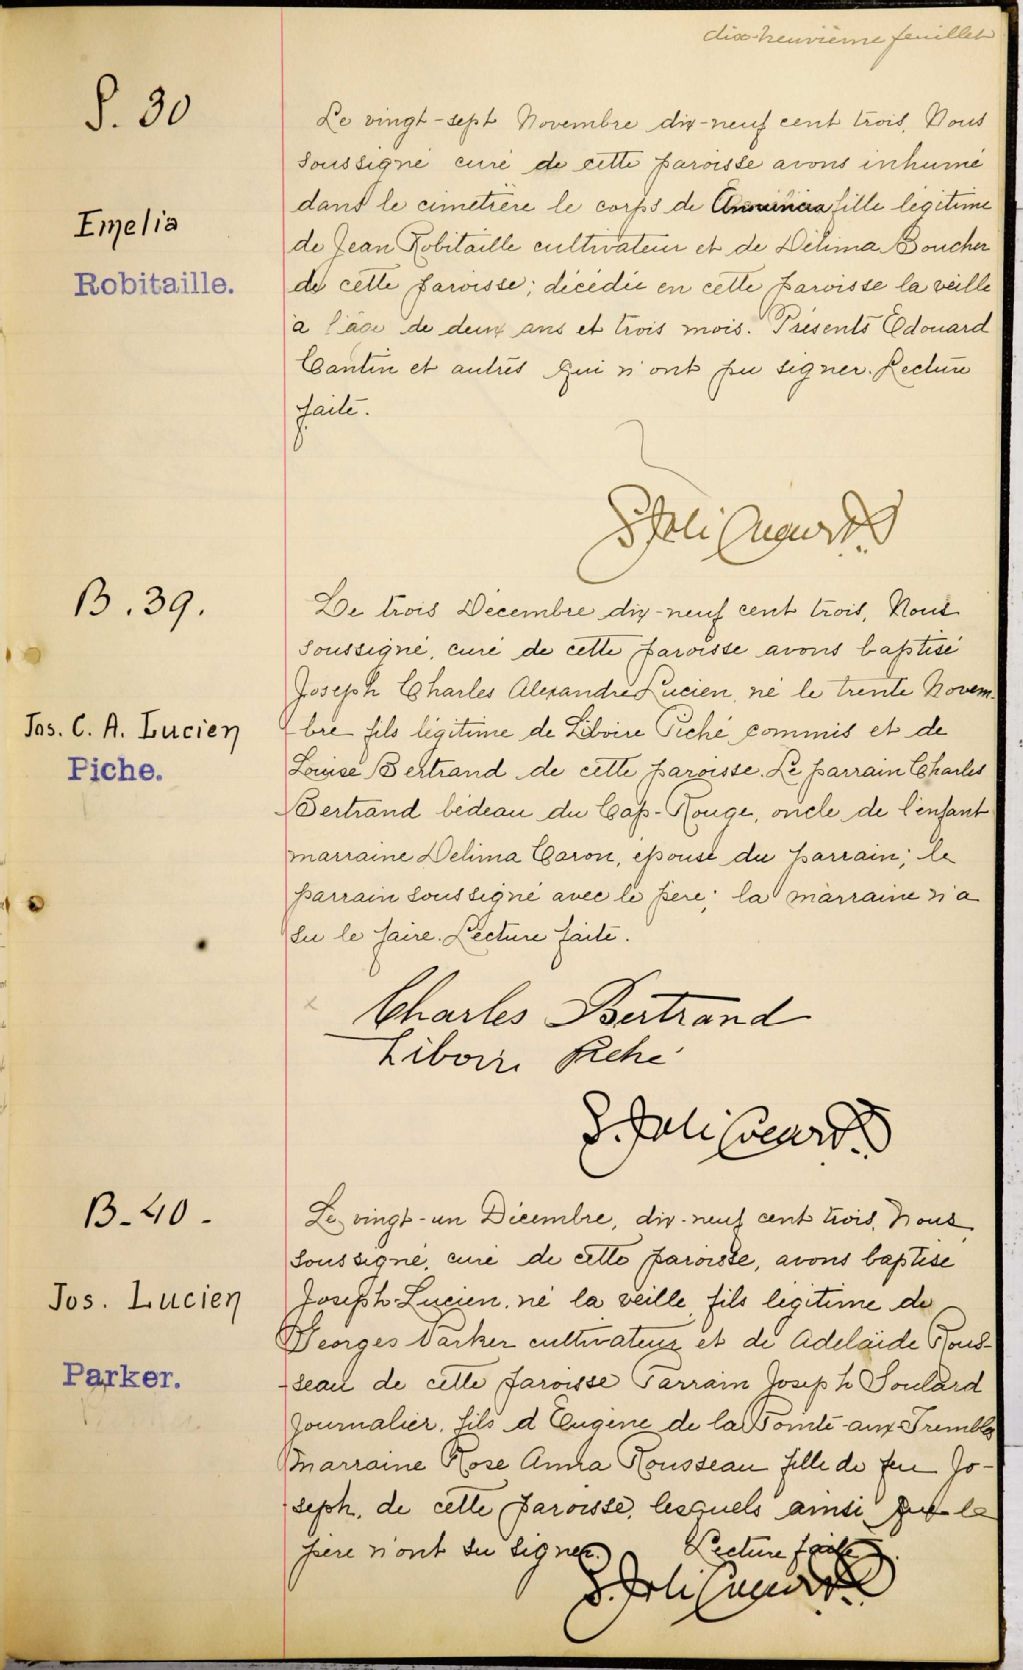 dix-neuvième feuillet
S. 30
Emelia
Robitaille.
Le vingt-sept Novembre dix-neuf cent trois, Nous
soussigné curé de cette paroisse avons inhumé
dans le cimetière le corps de fille légitime
de Jean Robitaille cultivateur et de Délima Boucher
de cette paroisse; décédée en cette paroisse la veille
à l'âge de deux ans et trois mois. Présents Edouard
Cantin et autres qui n'ont pu signer. Lecture
faite.
B. 39.
Jos. C. A. Lucien
Piche.
Le trois Décembre dix-neuf cent trois, Nous
soussigné, curé de cette paroisse avons baptisé
Joseph Charles Alexandre Lucien, né le trente Novem-
bre fils légitime de Liboire Piché commis et de
Louise Bertrand de cette paroisse. Le parrain Charles
Bertrand bédeau du Cap-Rouge, oncle de l'enfant
marraine Délima Caron, épouse du parrain; le
parrain soussigné avec le père; la marraine n'a
su le faire. Lecture faite.
Charles Bertrand
Liboire Piché
B-40-
Jos. Lucien
Parker.
Le vingt-un Décembre, dix-neuf cent trois, Nous
soussigné, curé de cette paroisse, avons baptisé
Joseph-Lucien, né la veille, fils légitime de
Georges Parker cultivateur et de Adelaïde Rous-
seau de cette paroisse Parrain Joseph Soulard
Journalier, fils d'Eugène de la Pointe-aux-Trembles
Marraine Rose Anna Rousseau fille de feu Jo-
seph, de cette paroisse, lesquels ainsi que le
père n'ont su signer. Lecture faite.